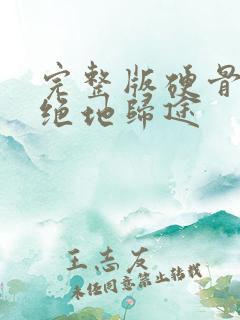 完整版硬骨
绝地歸途
王志友
未经同意禁止转载